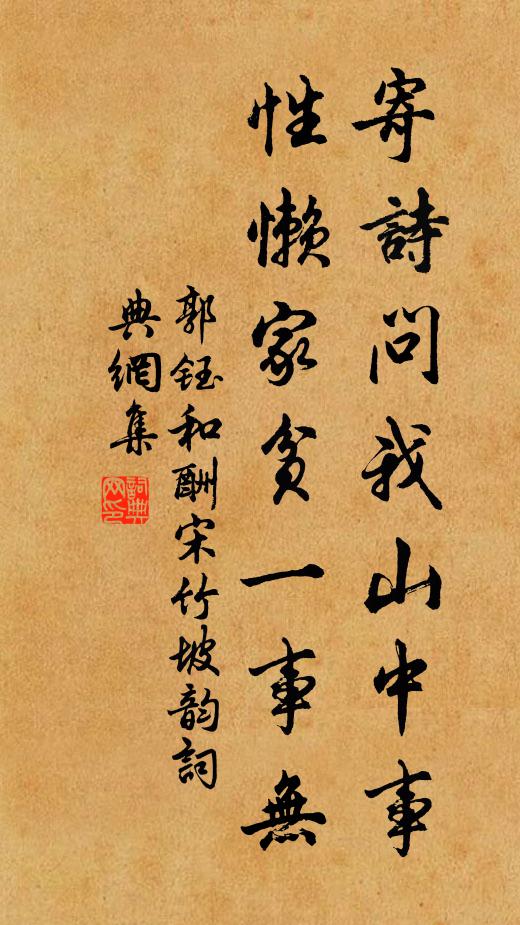 寄詩問我山中事
性懶家貧一事無
郭鈺和酬宋竹坡韵詞
典網集
詞典
网印